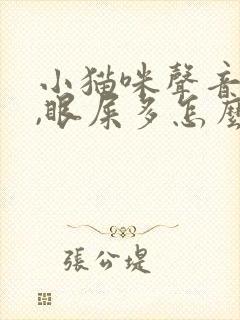 小猫咪聲音
,眼屎多怎麼
張公堤